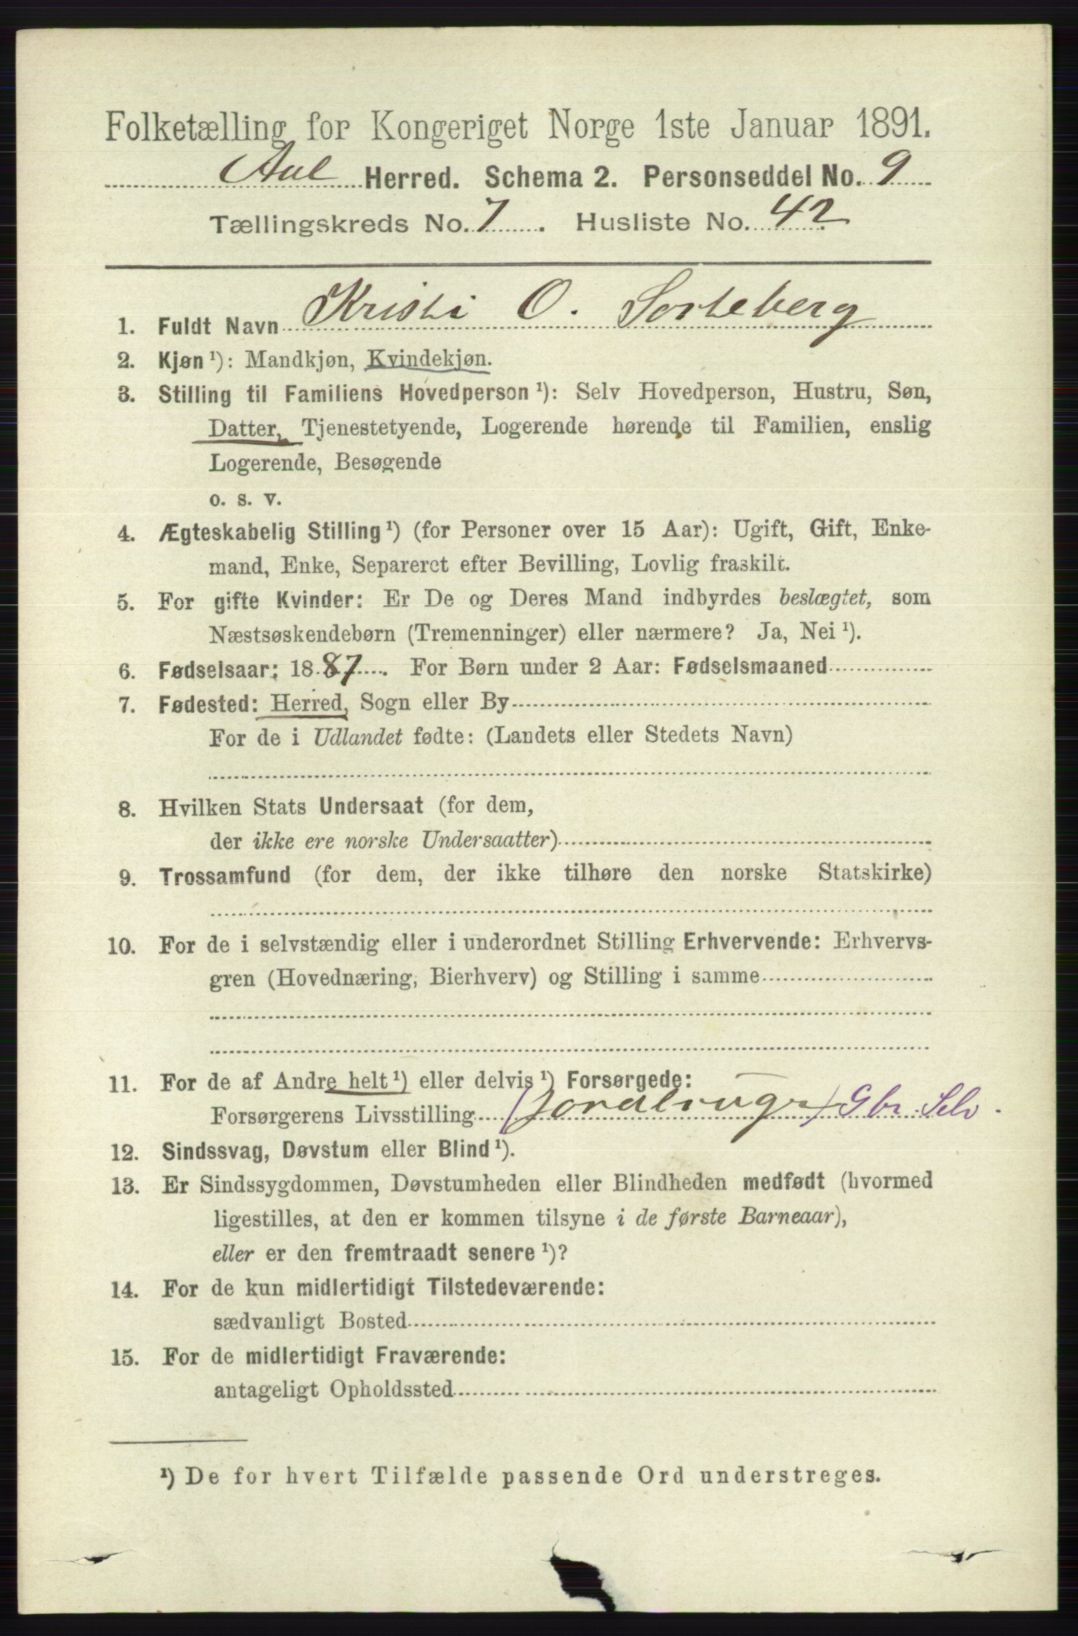 Folketælling for Kongeriget Norge 1ste Januar 1891.
Aal Herred. Schema 2. Personseddel No. 9
Tællingskreds No. 7. Husliste No. 42
1. Fuldt Navn Kristi O. Sorteberg
2. Kjøn ¹): Mandkjøn, Kvindekjøn.
3. Stilling til Familiens Hovedperson ¹): Selv Hovedperson, Hustru, Søn,
Datter, Tjenestetyende, Logerende hørende til Familien, enslig
Logerende, Besøgende
o. s. v.
4. Ægteskabelig Stilling ¹) (for Personer over 15 Aar): Ugift, Gift, Enke-
mand, Enke, Separeret efter Bevilling, Lovlig fraskilt.
5. For gifte Kvinder: Er De og Deres Mand indbyrdes beslægtet, som
Næstsøskendebørn (Tremenninger) eller nærmere? Ja, Nei ¹).
6. Fødselsaar: 1887. For Børn under 2 Aar: Fødselsmaaned
7. Fødested: Herred, Sogn eller By
For de i Udlandet fødte: (Landets eller Stedets Navn)
8. Hvilken Stats Undersaat (for dem,
der ikke ere norske Undersaatter)
9. Trossamfund (for dem, der ikke tilhøre den norske Statskirke)
10. For de i selvstændig eller i underordnet Stilling Erhvervende: Erhvervs-
gren (Hovednæring, Bierhverv) og Stilling i samme
11. For de af Andre helt ¹) eller delvis ¹) Forsørgede:
Forsørgerens Livsstilling (Jordbruger) Gbr. Selv.
12. Sindssvag, Døvstum eller Blind ¹).
13. Er Sindssygdommen, Døvstumheden eller Blindheden medfødt (hvormed
ligestilles, at den er kommen tilsyne i de første Barneaar),
eller er den fremtraadt senere ¹)?
14. For de kun midlertidigt Tilstedeværende:
sædvanligt Bosted
15. For de midlertidigt Fraværende:
antageligt Opholdssted
¹) De for hvert Tilfælde passende Ord understreges.